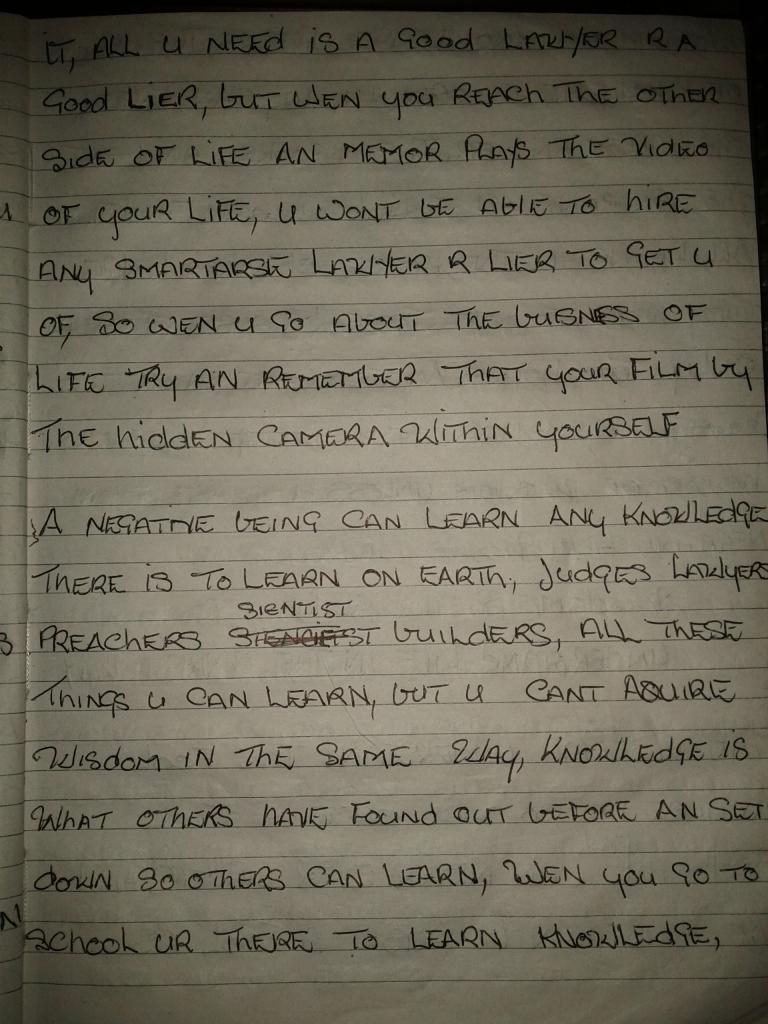 IT, ALL U NEEd iS A Good LAWYER R A
Good LiER, bUT WEN you REACH THE OTHER
SidE OF LiFE AN MEMOR PLAYS THE VidEO
OF yOUR LiFE, U WONT BE AblE TO hiRE
ANy SMARTARSE LAWYER R LiER TO GET U
OF, SO WEN U GO AbOUT THE bUSNESS OF
LiFE TRy AN REMEMBER THAT yOUR FiLM by
THE hiddEN CAMERA WiTHiN yOURSELF
A NEGATIVE bEING CAN LEARN ANy KNOWLEdGE
THERE iS TO LEARN ON EARTH, JUdGES LAWyERS
SIENTIST
PREACHERS bUiLdERS, ALL THESE
THiNGS U CAN LEARN, bUT U CANT AQUIRE
WiSdOM IN THE SAME WAy, KNOWLEdGE iS
WhAT OTHERS HAVE FOUNd OUT bEFORE AN SET
dOWN SO OTHERS CAN LEARN, WEN yOU GO TO
SChOOL UR THERE TO LEARN KNOWLEdGE,